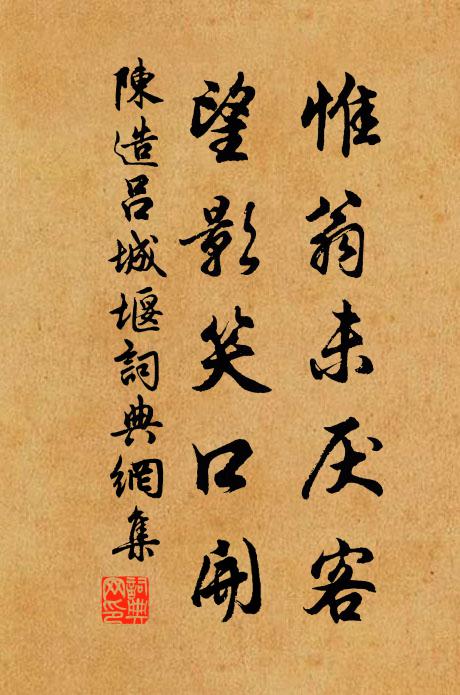 惟翁未厌客
望影笑口開
陳造吕城堰詞典網集
詞典网印